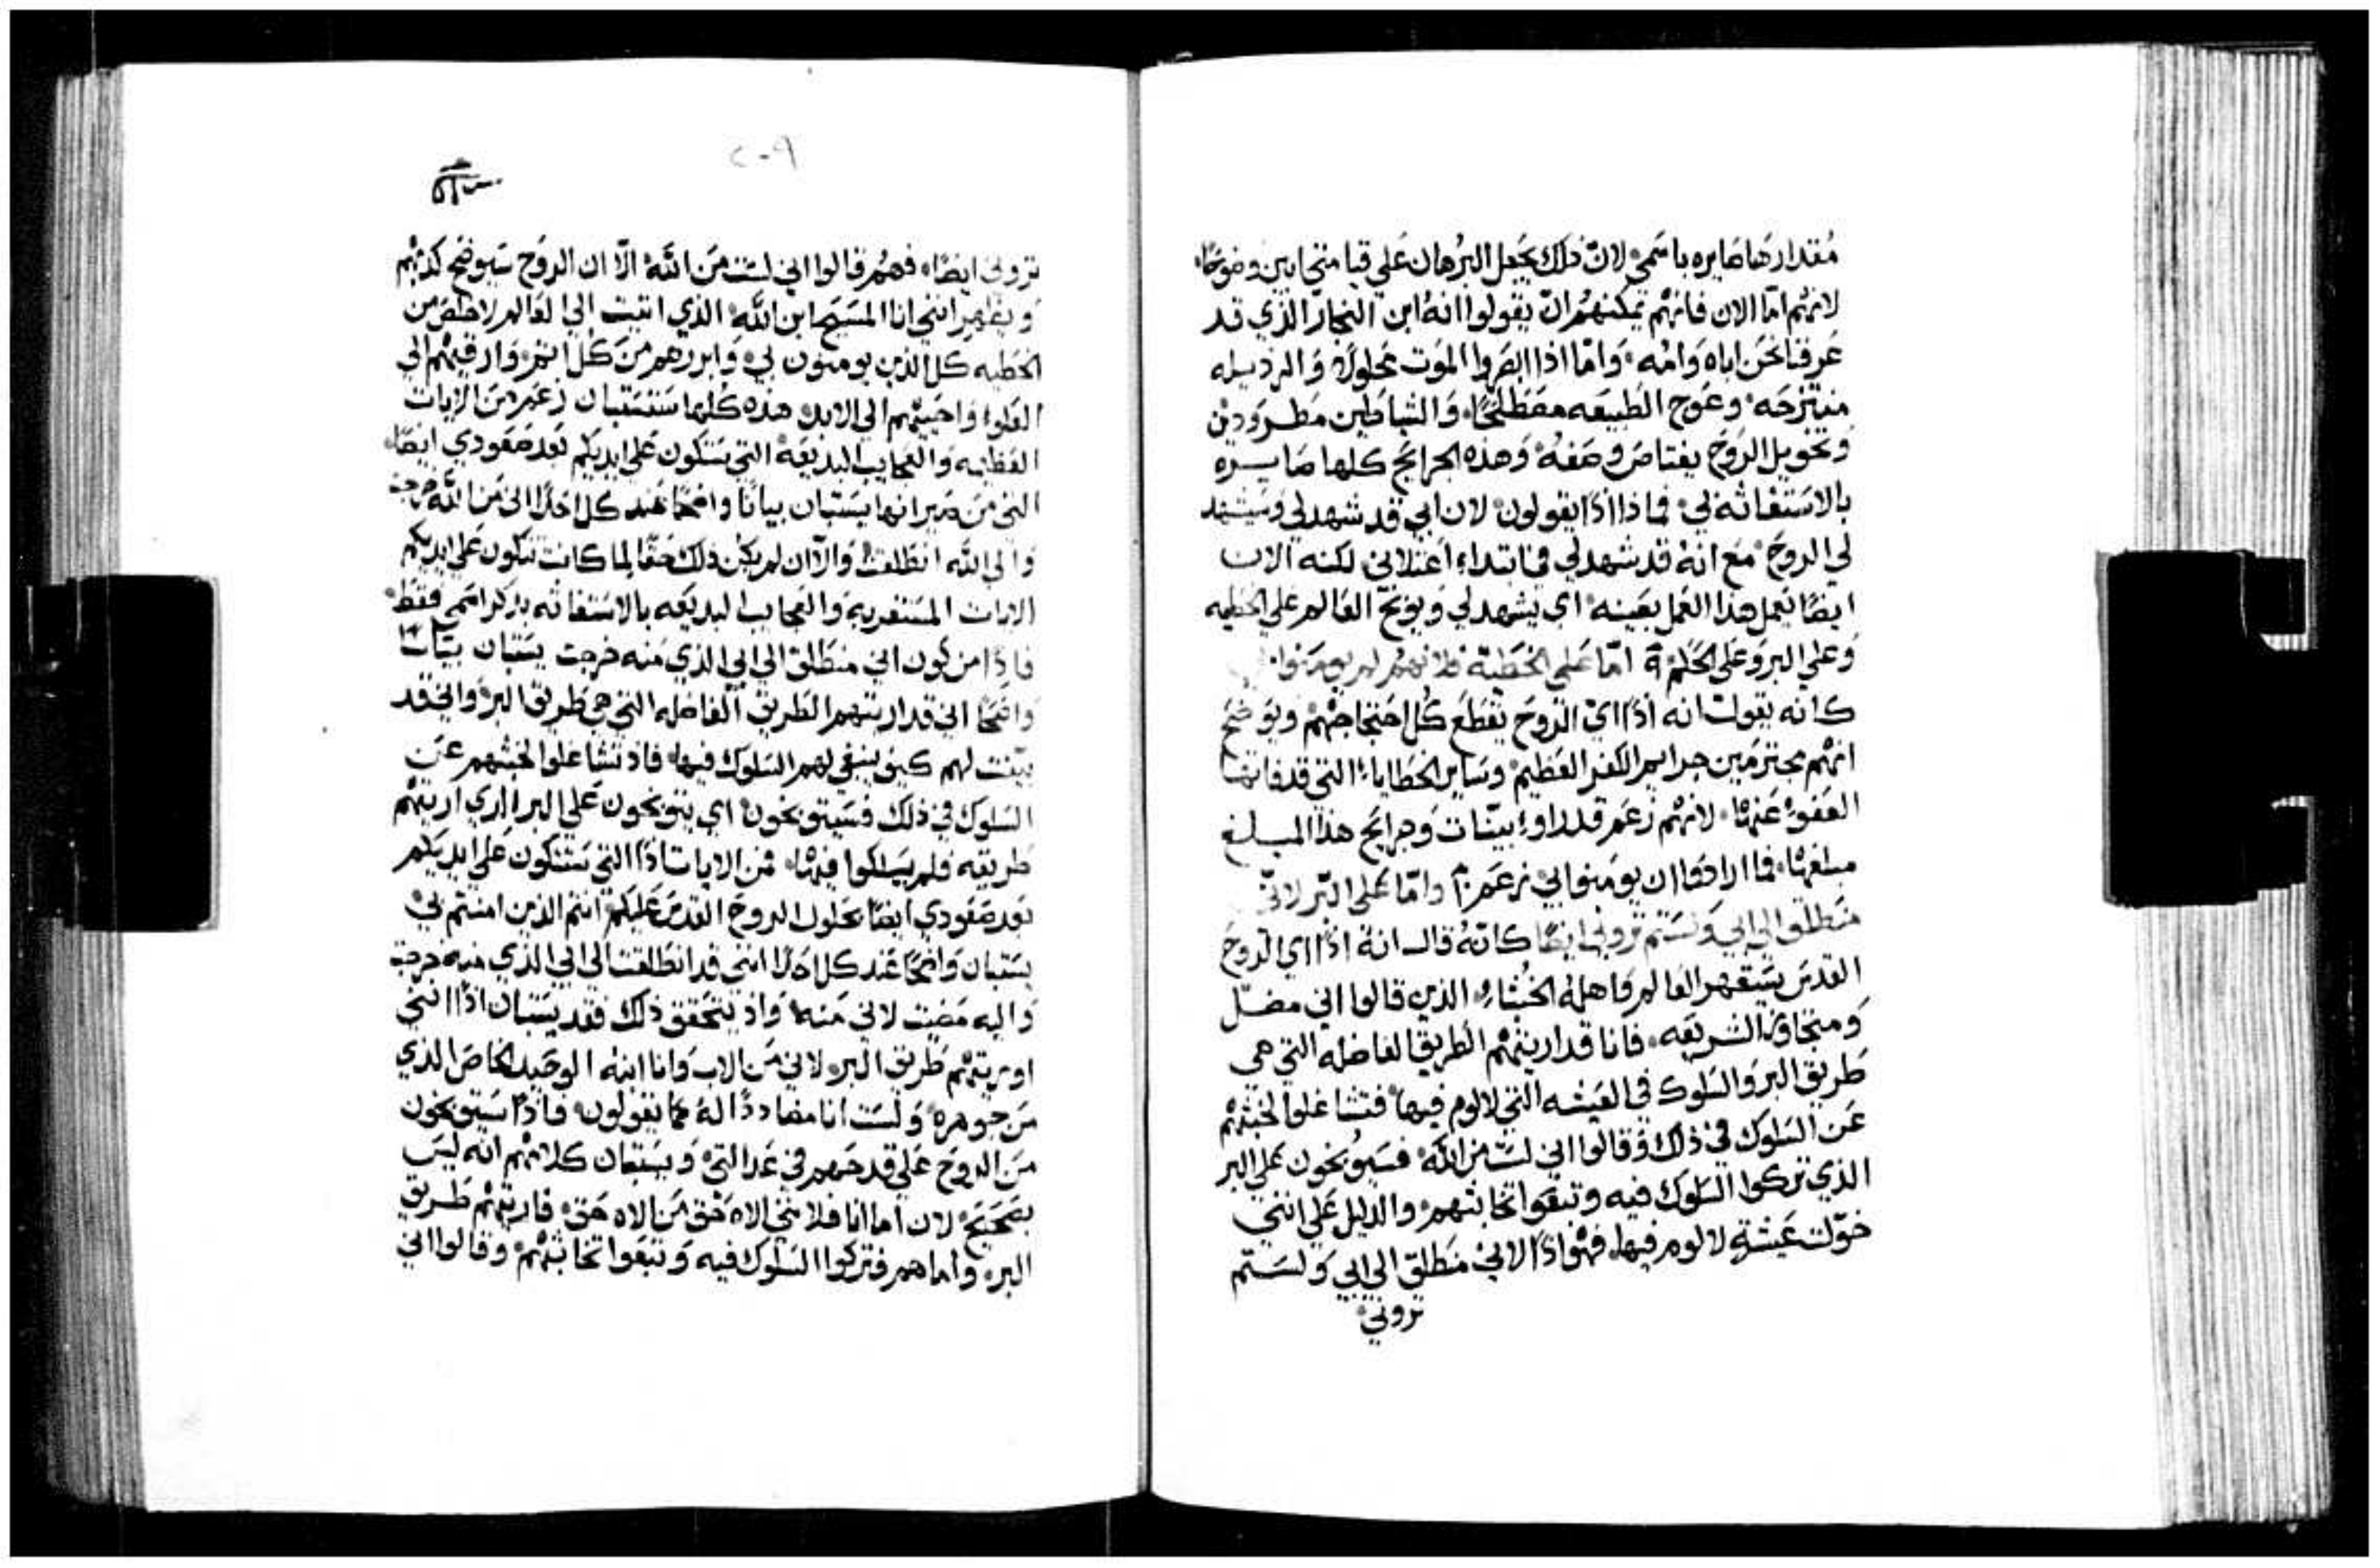 مقدارها صايره باسمي لان ذلك يجعل البرهان علي قيامتي ابين وضوحًا
لانهم اما الان فانهم يمكنهم ان يقولوا انه ابن النجار الذي قد
عرفنا نحن اباه وامه وامّا اذا ابصروا الموت محلولًا والرذيله
منتزحه وعوج الطبيعه مصطلحًا والشياطين مطرودين
وتحويل الروح يعتاص وصفه وهذه الجرايح كلها صايره
بالاستغاثه لي فماذا اذًا يقولون لان ابي قد شهد لي وسيشهد
لي الروح مع انه قد شهد لي في ابتداء اعتلاني لكنه الان
ايضًا يعمل هذا العمل بعينه اي يشهد لي ويوبخ العالم علي الخطيه
وعلي البر وعلي الحكم امّا علي الخطيّة فلانهم لم يومنوا
كانه يقول انه اذًا اي الروح يقطع كل احتجاجهم ويوضح
انهم مجترمين جرايم الكفر العظيم وساير الخطايا التي قد فاتها
العفو عنها لانهم زعم قد راوا بيّنات وجرايح هذا المبلغ
مبلغها فما ارادوا ان يومنوا بي زعم وامّا علي البر لانّي
منطلق الي ابي ولستم تروني ايضًا كانه قال انه اذًا اي الروح
القدس يستقهر العالم واهله الخبثاء الذين قالوا اني مضلّ
ومتجاوز الشريعه فانا قد اريتهم الطريق الفاضله التي هي
طريق البر والسلوك في العيشه التي لا لوم فيها فتشاغلوا لخبثهم
عن السلوك في ذلك وقالوا اني لست من الله فسيوبخون علي البر
الذي تركوا السلوك فيه وتبعوا تخابثهم والدليل علي انني
خوّلت عيشة لا لوم فيها فهو اذًا لاني منطلق الي ابي ولستم
تروني
٢٠٩
تروني ايضًا فهم قالوا اني لست من الله الّا ان الروح سيوضح كذبهم
ويظهر انني انا المسيح ابن الله الذي اتيت الي العالم لاخلص من
الخطيه كل الذين يومنون بي وابررهم من كل اثم وارقيهم الي
العلو واحييهم الي الابد هذه كلها ستستبان زعم من الايات
العظيمه والعجايب البديعة التي ستكون علي ايديكم بعد صعودي ايضًا
التي من صيرانها يستبان بيانًا واضحًا عند كل احد اني من الله خرجت
والي الله انطلقت والّا ان لم يكن ذلك حقًا لما كانت تتكون علي ايديكم
الايات المستغربه والعجايب البديعه بالاستغاثه بذكر اسمي فقط
فاذًا من كون اني منطلق الي ابي الذي منه خرجت يستبان بيانًا
واضحًا اني قد اريتهم الطريق الفاضله التي هي طريق البر واني قد
بيّنت لهم كيف ينبغي لهم السلوك فيها فاذ تشاغلوا لخبثهم عن
السلوك في ذلك فسيتوبخون اي يتوبخون علي البر الذي اريتهم
طريقه فلم يسلكوا فيها فمن الايات اذًا التي ستتكون علي ايديكم
بعد صعودي ايضًا بحلول الروح القدس عليكم انتم الذين امنتم بي
يستبان واضحًا عند كل احد انني قد انطلقت الي ابي الذي منه خرجت
واليه مضيت لاني منه واذ يتحقق ذلك فقد يستبان اذًا انني
اوريتهم طريق البر لاني من الاب وانا ابنه الوحيد الخاص الذي
من جوهره ولست انا مضاددًا له كما يقولون فاذًا سيتوبخون
من الروح علي قدحهم في عدالتي ويستبان كلامهم انه ليس
بصحيح لان اما انا فلانني الاه حق من الاه حق فاريتهم طريق
البر واما هم فتركوا السلوك فيه وتبعوا تخابثهم وقالوا اني